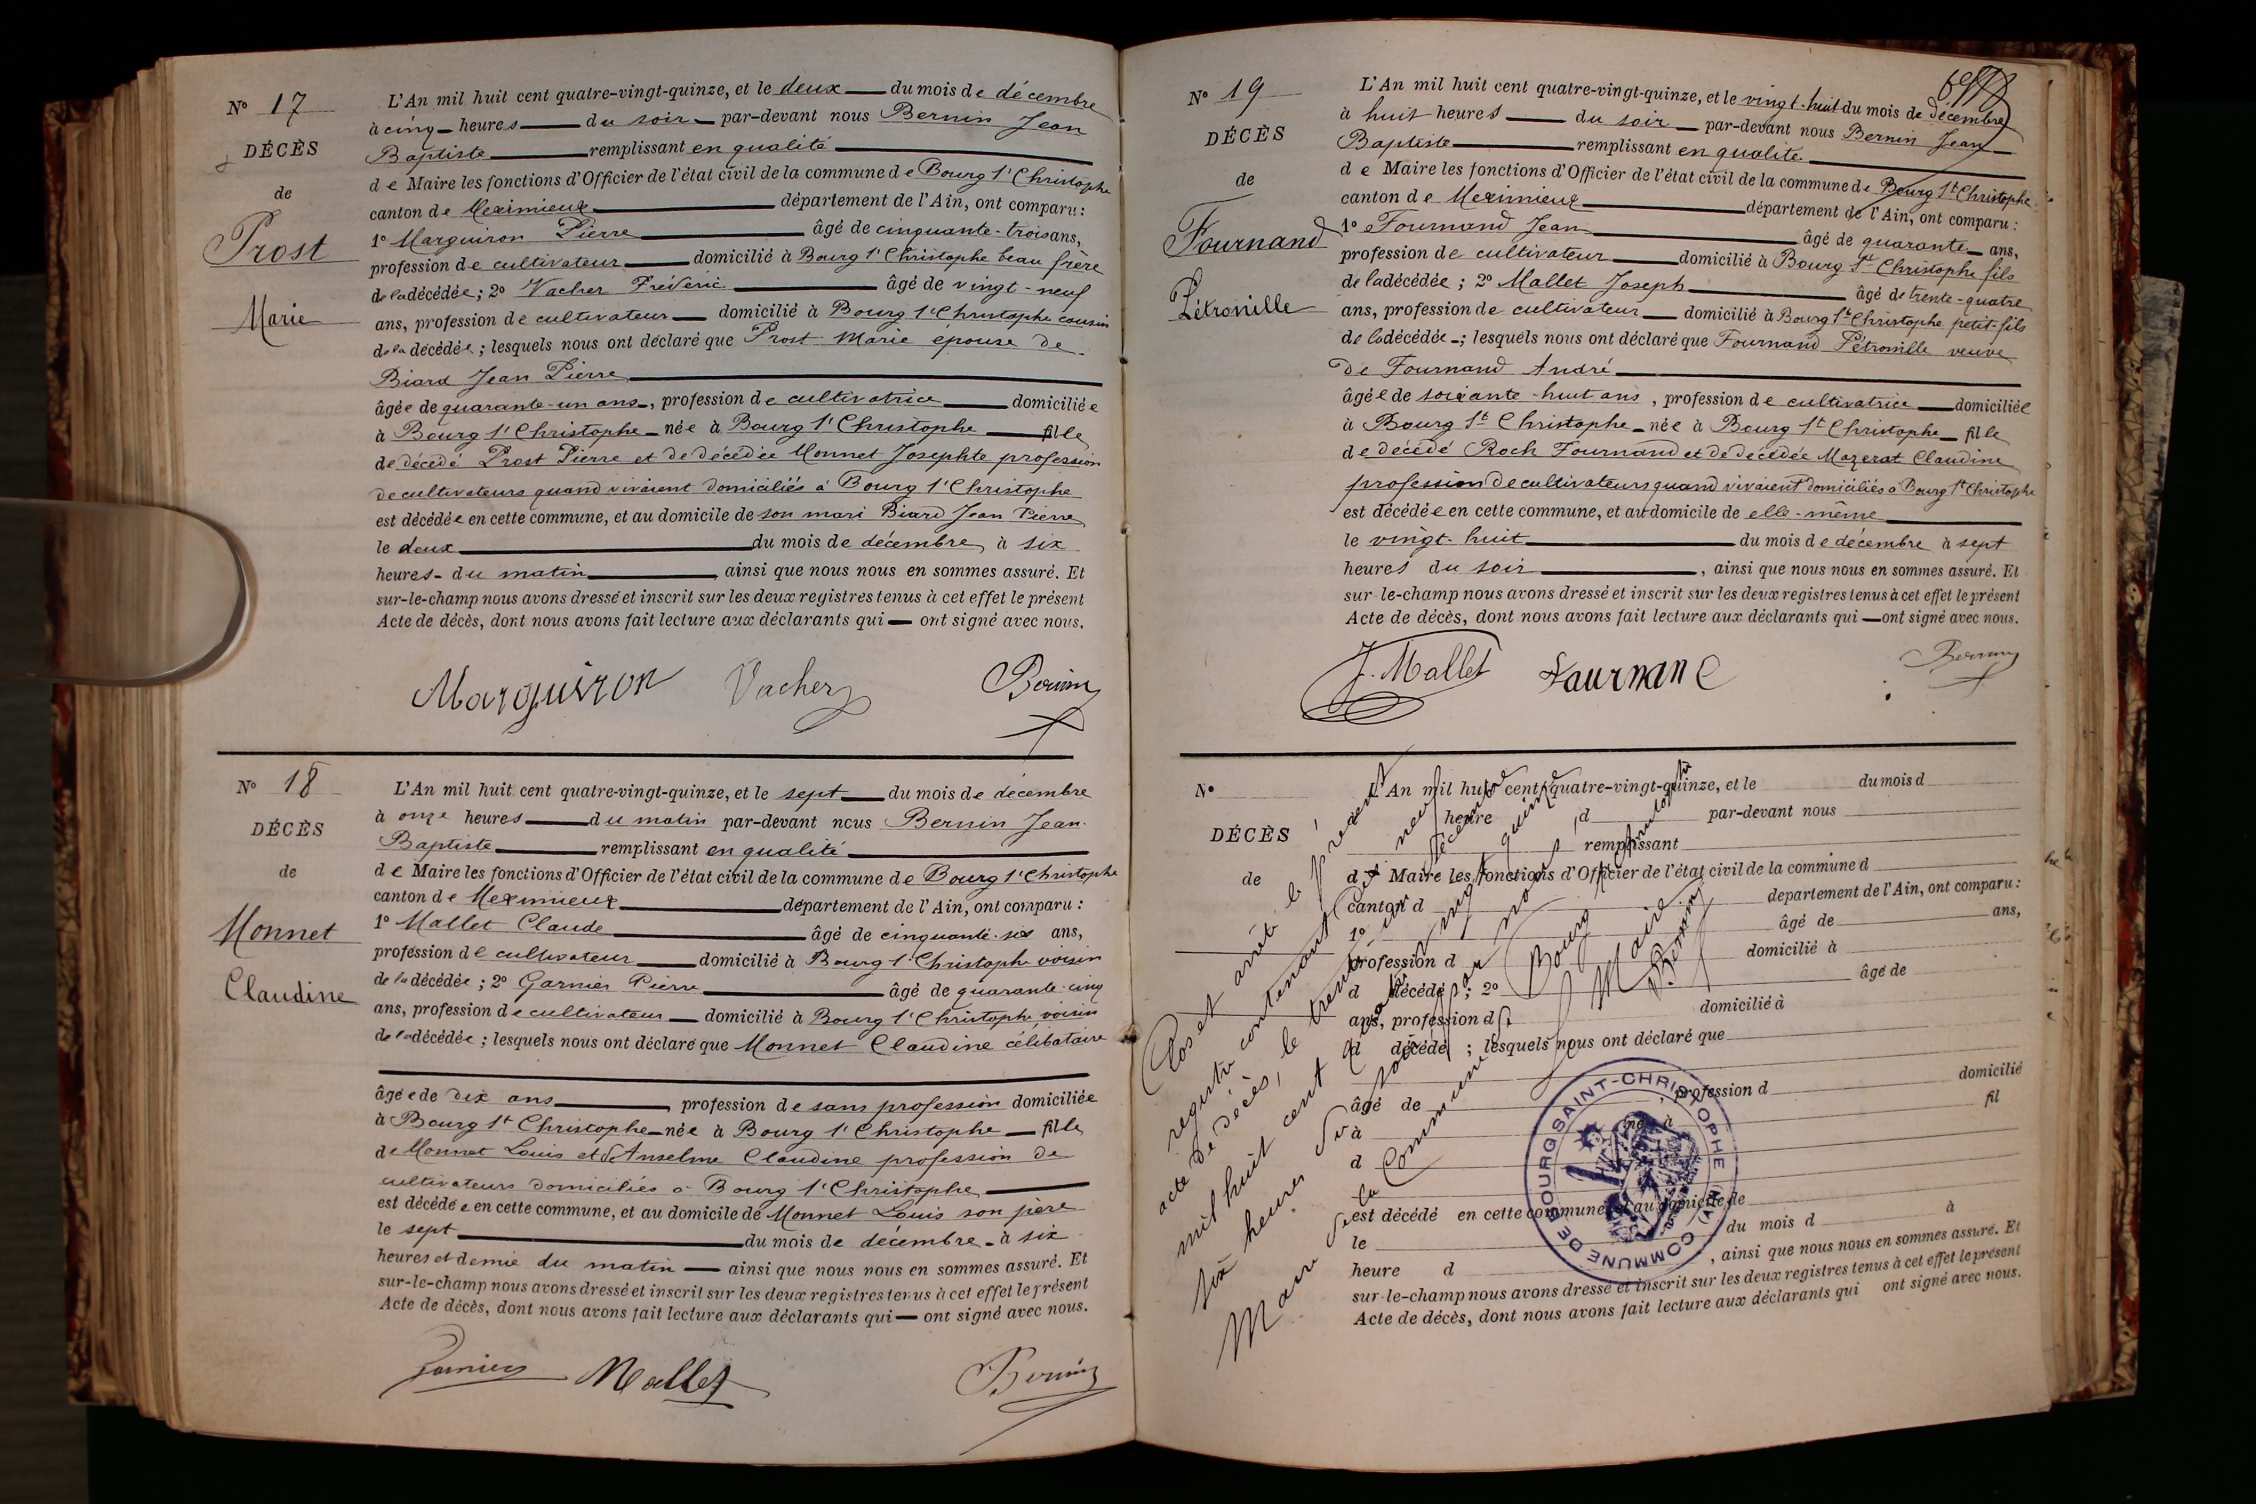 N° 17
DÉCÈS
de
Prost
Marie
L'An mil huit cent quatre-vingt-quinze, et le deux du mois de décembre
à cinq heures du soir par-devant nous Bernin Jean
Baptiste remplissant en qualité
de Maire les fonctions d'Officier de l'état civil de la commune de Bourg St Christophe
canton de Meximieux département de l'Ain, ont comparu :
1° Marguiron Pierre âgé de cinquante-trois ans,
profession de cultivateur domicilié à Bourg St Christophe beau frère
de la décédée ; 2° Vacher Fréderic âgé de vingt-neuf
ans, profession de cultivateur domicilié à Bourg St Christophe cousin
de la décédée ; lesquels nous ont déclaré que Prost Marie épouse de
Biard Jean Pierre
âgée de quarante-un ans, profession de cultivatrice domiciliée
à Bourg St Christophe née à Bourg St Christophe fille
de décédé Prost Pierre et de décédée Monnet Josephte profession
de cultivateurs quand vivaient domiciliés à Bourg St Christophe
est décédée en cette commune, et au domicile de son mari Biard Jean Pierre
le deux du mois de décembre à six
heures du matin ainsi que nous nous en sommes assuré. Et
sur-le-champ nous avons dressé et inscrit sur les deux registres tenus à cet effet le présent
Acte de décès, dont nous avons fait lecture aux déclarants qui — ont signé avec nous.
Marguiron Vacher Bernin
N° 18
DÉCÈS
de
Monnet
Claudine
L'An mil huit cent quatre-vingt-quinze, et le sept du mois de décembre
à onze heures du matin par-devant nous Bernin Jean
Baptiste remplissant en qualité
de Maire les fonctions d'Officier de l'état civil de la commune de Bourg St Christophe
canton de Meximieux département de l'Ain, ont comparu :
1° Mallet Claude âgé de cinquante-six ans,
profession de cultivateur domicilié à Bourg St Christophe voisin
de la décédée ; 2° Garnier Pierre âgé de quarante-cinq
ans, profession de cultivateur domicilié à Bourg St Christophe voisin
de la décédée ; lesquels nous ont déclaré que Monnet Claudine célibataire
âgée de dix ans, profession de sans profession domiciliée
à Bourg St Christophe née à Bourg St Christophe fille
de Monnet Louis et de Anselme Claudine profession de
cultivateurs domiciliés à Bourg St Christophe
est décédée en cette commune, et au domicile de Monnet Louis son père
le sept du mois de décembre à six
heures et demie du matin ainsi que nous nous en sommes assuré. Et
sur-le-champ nous avons dressé et inscrit sur les deux registres tenus à cet effet le présent
Acte de décès, dont nous avons fait lecture aux déclarants qui — ont signé avec nous.
Garnier Mallet Bernin
N° 19
DÉCÈS
de
Fournand
Pétronille
L'An mil huit cent quatre-vingt-quinze, et le vingt-huit du mois de décembre
à huit heures du soir par-devant nous Bernin Jean
Baptiste remplissant en qualité
de Maire les fonctions d'Officier de l'état civil de la commune de Bourg St Christophe
canton de Meximieux département de l'Ain, ont comparu :
1° Fournand Jean âgé de quarante ans,
profession de cultivateur domicilié à Bourg St Christophe fils
de la décédée ; 2° Mallet Joseph âgé de trente-quatre
ans, profession de cultivateur domicilié à Bourg St Christophe petit-fils
de la décédée ; lesquels nous ont déclaré que Fournand Pétronille veuve
de Fournand André
âgée de soixante-huit ans, profession de cultivatrice domiciliée
à Bourg St Christophe née à Bourg St Christophe fille
de décédé Roch Fournand et de décédée Mazerat Claudine
profession de cultivateurs quand vivaient domiciliés à Bourg St Christophe
est décédée en cette commune, et au domicile de elle-même
le vingt-huit du mois de décembre à sept
heures du soir, ainsi que nous nous en sommes assuré. Et
sur-le-champ nous avons dressé et inscrit sur les deux registres tenus à cet effet le présent
Acte de décès, dont nous avons fait lecture aux déclarants qui — ont signé avec nous.
J. Mallet Fournand Bernin
N°
DÉCÈS
de
L'An mil huit cent quatre-vingt-quinze, et le du mois d
heure d par-devant nous
remplissant
d Maire les fonctions d'Officier de l'état civil de la commune d
canton d département de l'Ain, ont comparu :
1° âgé de ans,
profession d domicilié à
d décédé ; 2° âgé de
ans, profession d domicilié à
d décédé ; lesquels nous ont déclaré que
âgé de , profession d domicilié
à né à fil
d
est décédé en cette commune, et au domicile de
le du mois d à
heure d , ainsi que nous nous en sommes assuré. Et
sur-le-champ nous avons dressé et inscrit sur les deux registres tenus à cet effet le présent
Acte de décès, dont nous avons fait lecture aux déclarants qui ont signé avec nous.
Clos et arrêté le présent
registre contenant dix neuf
acte de décès, le trente un décembre
mil huit cent quatre vingt quinze à
six heures du soir par nous
Maire de la commune de Bourg St Christophe
Le Maire
Bernin
COMMUNE DE BOURG SAINT-CHRISTOPHE (AIN)